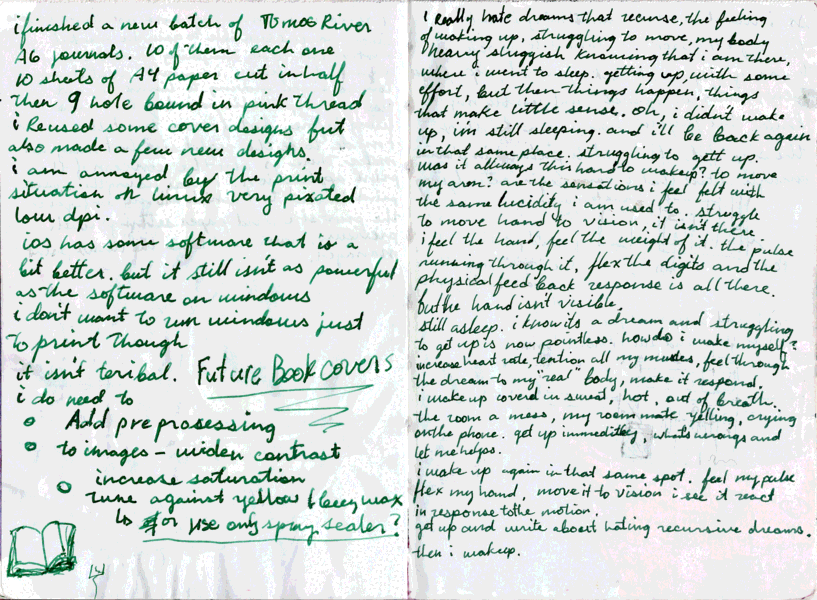 i finished a new batch of Tomoe River
A6 journals. 10 of them each one
10 sheets of A4 paper cut in half
then 9 hole bound in pink thread
i Reused some cover designs but
also made a few new designs.
i am annoyed by the print
situation on linux very pixated
low dpi.
ios has some software that is a
bit better. but it still isn't as powerful
as the software on windows
i don't want to run windows just
to print though
it isn't teribal. Future Book covers
i do need to
o Add preprosessing
o to images - widen contrast
increase saturation
o tune against yellow / beeywax
or use only spray sealer?
14
i Really hate dreams that recurse, the feeling
of waking up, struggling to move, my body
heavy sluggish knowing that i am there,
where i went to sleep. getting up, with some
effort, but then things happen, things
that make little sense. Oh, i didn't wake
up, im still sleeping. and i'll be back again
in that same place. struggling to gett up.
was it allways this hard to wakeup? to move
my arm? are the sensations i feel felt with
the same lucidity i am used to. struggle
to move hand to vision, it isn't there
i feel the hand, feel the weight of it. the pulse
running through it, flex the digits and the
physical feed back response is all there.
but the hand isn't visible.
still asleep. i know its a dream and struggling
to get up is now pointless. how do i wake myself?
increase heart rate, tention all my muscles, feel through
the dream to my "real" body, make it respond.
i wake up coverd in sweat, hot, out of breath.
the room a mess, my roommate yelling, crying
on the phone. get up immeditly, whats wrong and
let me helps.
i wake up again in that same spot. feel my pulse
flex my hand, move it to vision i see it react
in response to the motion.
get up and write about hating recursive dreams.
then i wakeup.